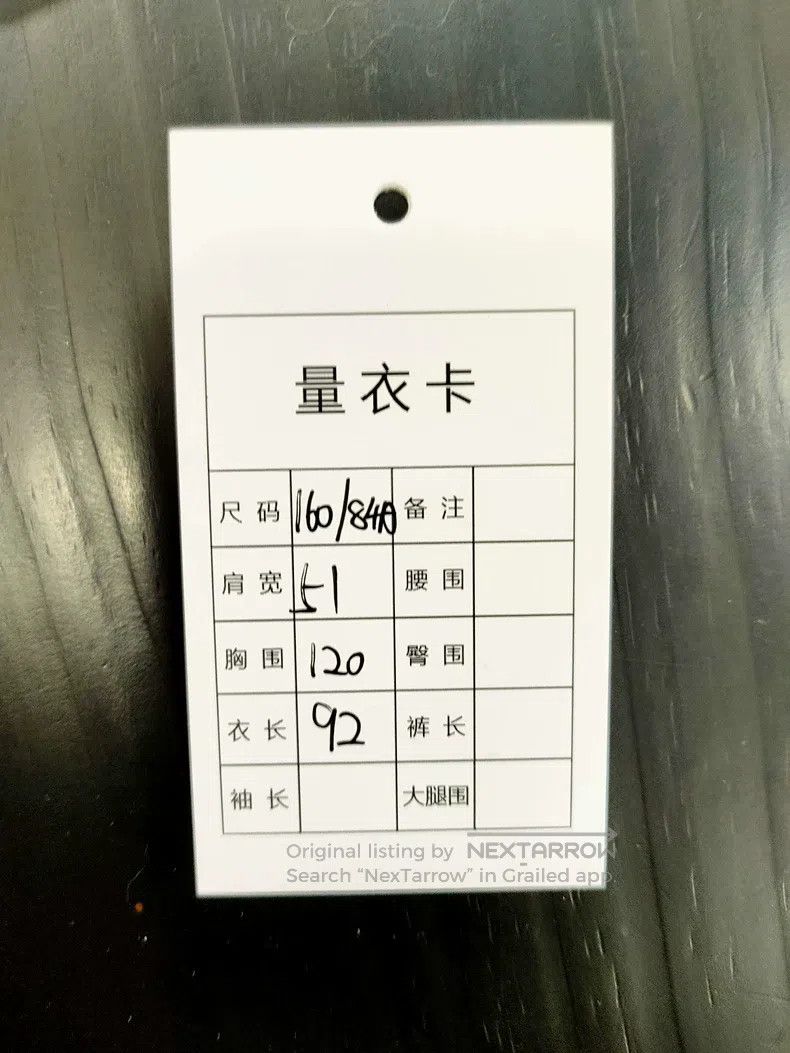 量衣卡
尺码 160/84A 备注
肩宽 51 腰围
胸围 120 臀围
衣长 92 裤长
袖长 大腿围
Original listing by NEXTARROW
Search “NexTarrow” in Grailed app